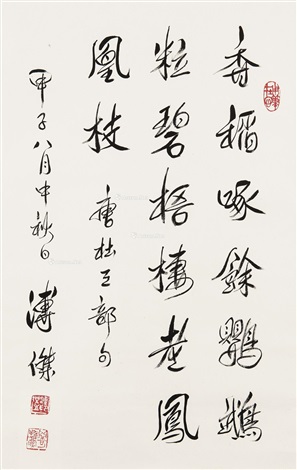 香稻啄餘鸚鵡
粒碧梧棲老鳳
凰枝 唐杜工部句
甲子八月中秋日
溥傑